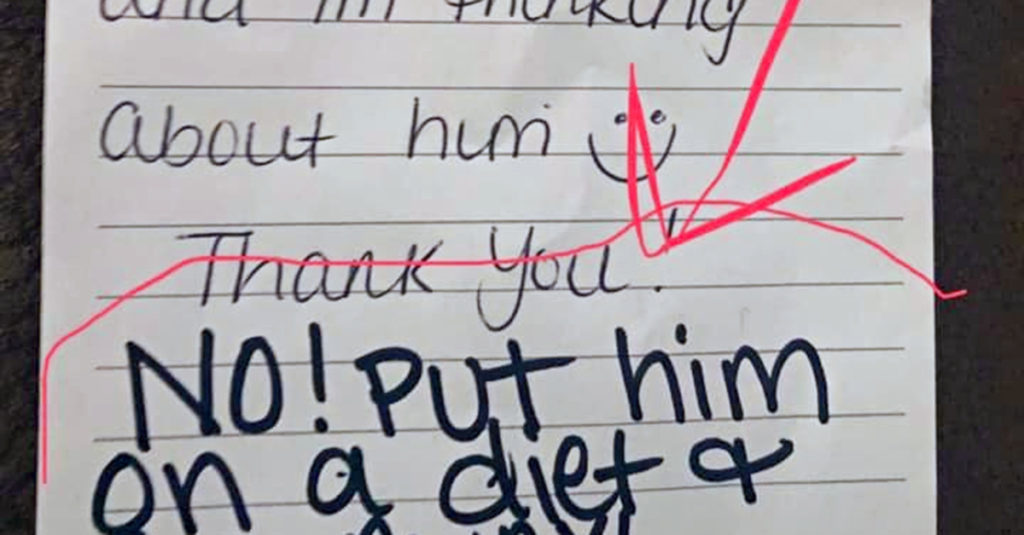 and I'm thinking
about him
Thank you.
NO! Put him
on a diet &